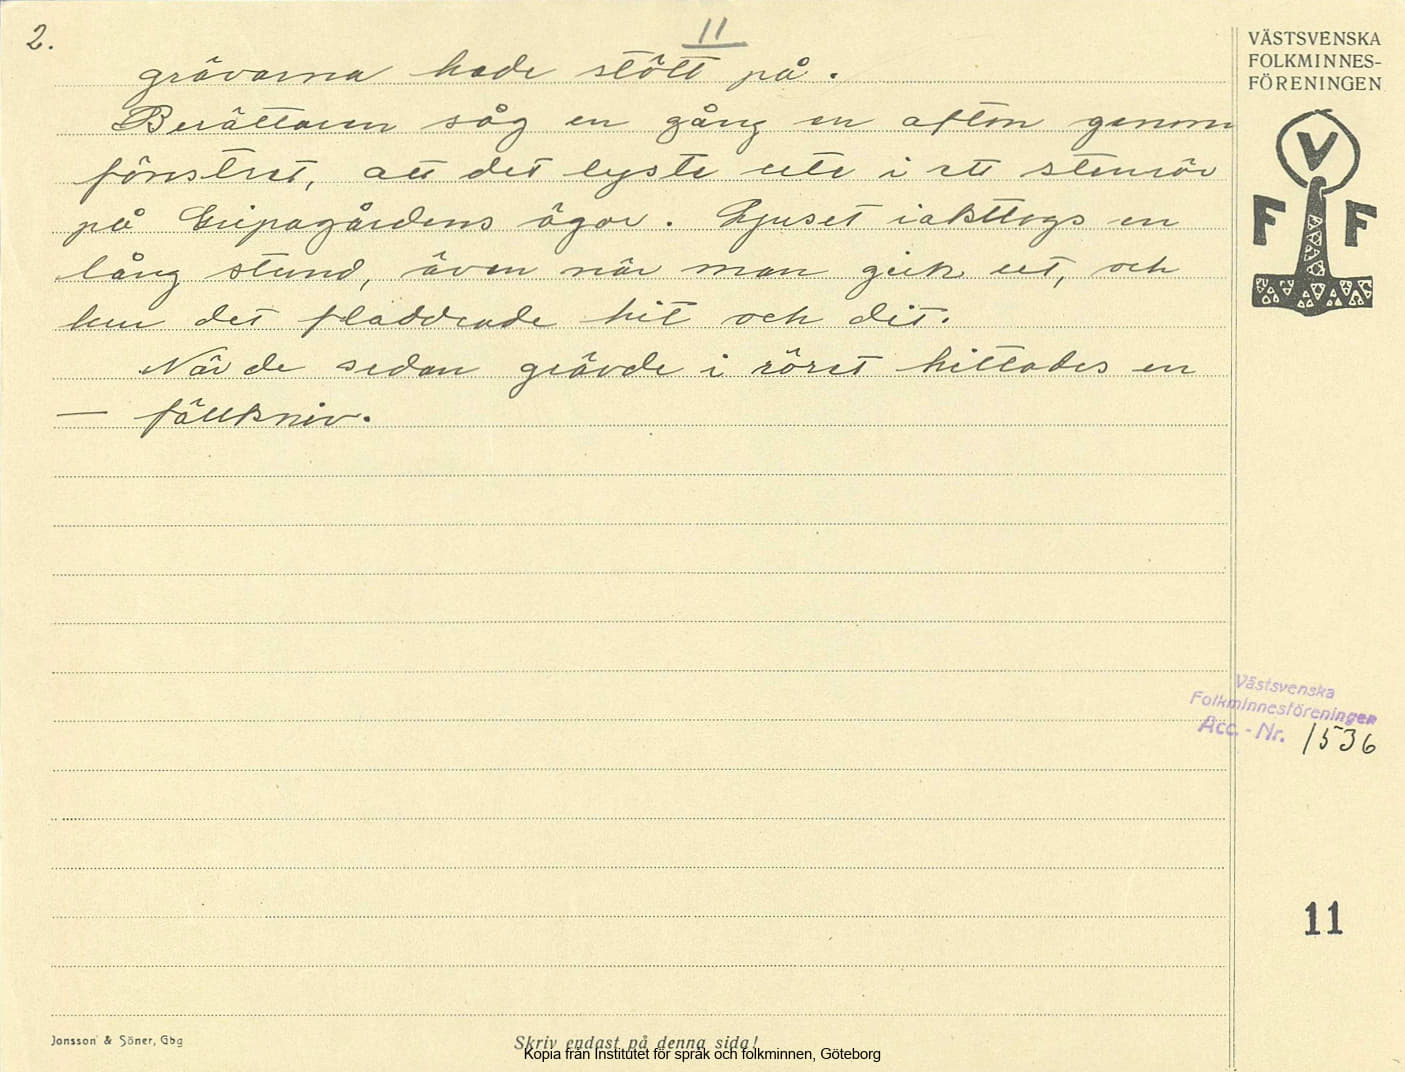 2.
11
grävarna hade stött på.
Berättaren såg en gång en afton genom
fönstret, att det lyste ute i ett stenrör
på Gripagårdens ägor. Ljuset iakttogs en
lång stund, även när man gick ut, och
hur det fladdrade hit och dit.
När de sedan grävde i röret hittades en
— fällkniv.
VÄSTSVENSKA
FOLKMINNES-
FÖRENINGEN
V
F F
Västsvenska
Folkminnesföreningen
Acc. - Nr. 1536
11
Jonsson & Söner, Gbg
Skriv endast på denna sida!
Kopia från Institutet för språk och folkminnen, Göteborg